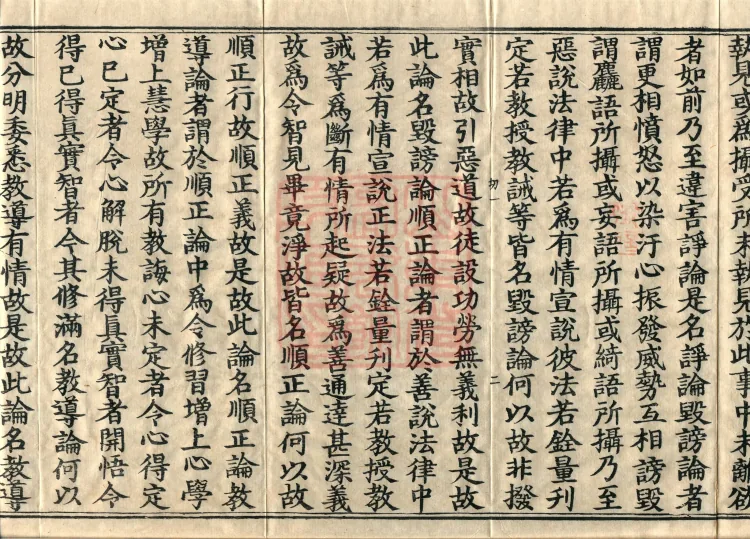 執見或為攝受所未執見於此事中未離欲
者如前乃至違害諍論是名諍論毀謗論者
謂更相憤怒以染汙心振發威勢互相謗毀
謂麤語所攝或妄語所攝或綺語所攝乃至
惡說法律中若為有情宣說彼法若銓量刊
定若教授教誡等皆名毀謗論何以故非撥
初一
二
實相故引惡道故徒設功勞無義利故是故
此論名毀謗論順正論者謂於善說法律中
若為有情宣說正法若銓量刊定若教授教
誡等為斷有情所起疑故為善通達甚深義
故為令智見畢竟淨故皆名順正論何以故
順正行故順正義故是故此論名順正論教
導論者謂於順正論中為令修習增上心學
增上慧學故所有教誨心未定者令心得定
心已定者令心解脫未得真實智者開悟令
得已得真實智者令其修滿名教導論何以
故分明委悉教導有情故是故此論名教導